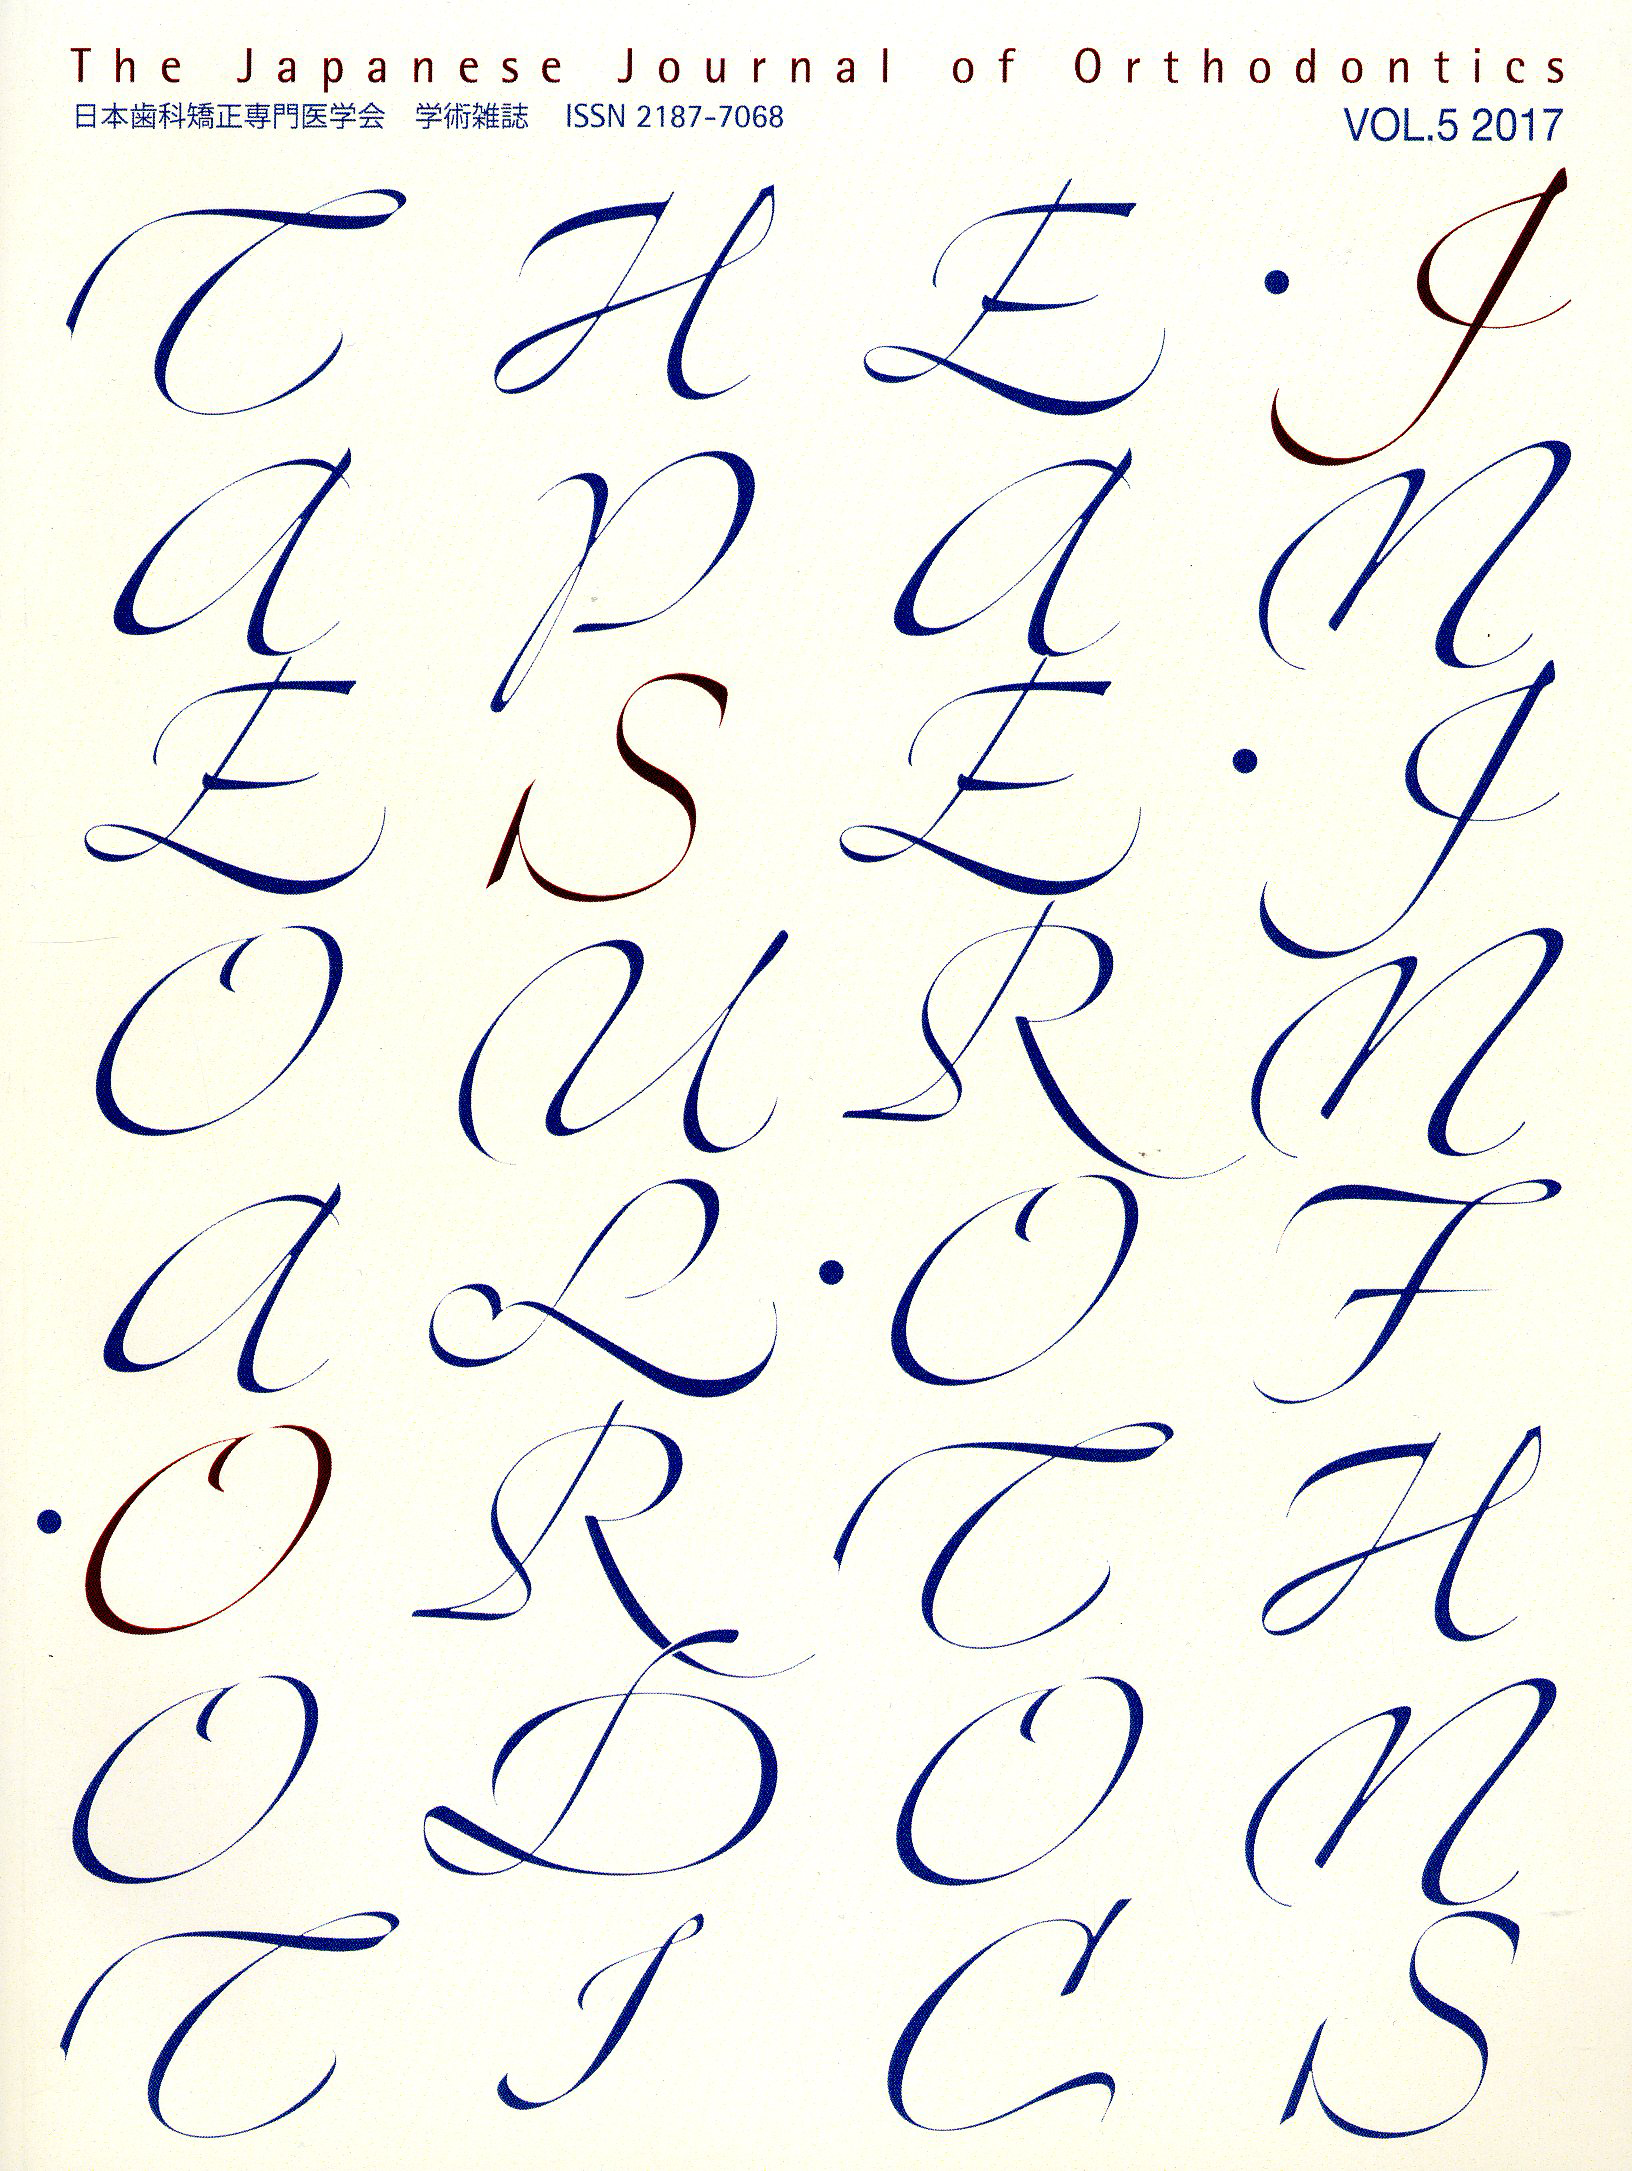 The Japanese Journal of Orthodontics
日本歯科矯正専門医学会 学術雑誌 ISSN 2187-7068
VOL.5 2017
T H E • J
A P A N
E S E • J
O U R N
A L • O F
• O R T H
O D O N
T I C S